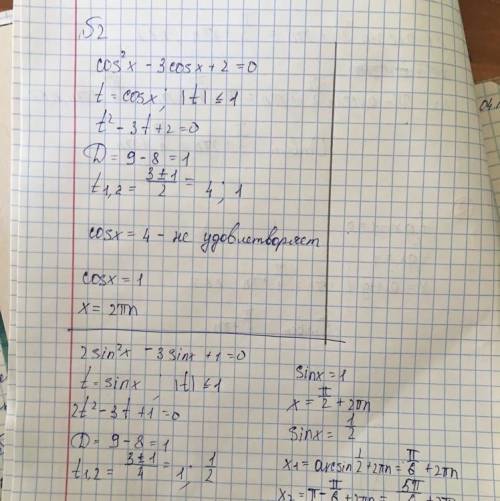 §2
cos²x - 3cosx + 2 = 0
t = cosx; |t| ≤ 1
t² - 3t + 2 = 0
D = 9 - 8 = 1
t₁,₂ = (3±1)/2 = 4; 1
cosx = 4 - не удовлетворяет
cosx = 1
x = 2πn
2sin²x - 3sinx + 1 = 0
t = sinx ; |t| ≤ 1
2t² - 3t + 1 = 0
D = 9 - 8 = 1
t₁,₂ = (3±1)/4 = 1; 1/2
sinx = 1
x = π/2 + 2πn
sinx = 1/2
x₁ = arcsin 1/2 + 2πn = π/6 + 2πn
x₂ = π - π/6 + 2πn = 5π/6 + 2πn